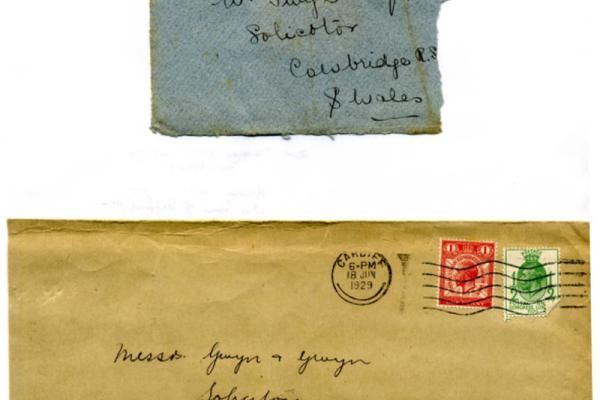 W. Gwyn
Solicitor
Cowbridge R.S
S Wales
CARDIFF
6-PM
18 JUN
1929
1 1
Messrs. Gwyn & Gwyn
Solicitors